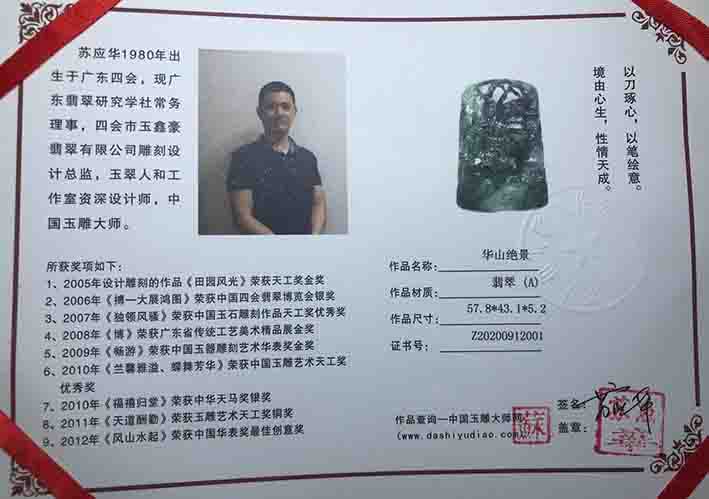 苏应华1980年出
生于广东四会，现广
东翡翠研究学社常务
理事，四会市玉鑫豪
翡翠有限公司雕刻设
计总监，玉翠人和工
作室资深设计师，中
国玉雕大师。
以刀琢心，以笔绘意。
境由心生，性情天成。
所获奖项如下：
1、2005年设计雕刻的作品《田园风光》荣获天工奖金奖
2、2006年《搏一大展鸿图》荣获中国四会翡翠博览会银奖
3、2007年《独领风骚》荣获中国玉石雕刻作品天工奖优秀奖
4、2008年《博》荣获广东省传统工艺美术精品展金奖
5、2009年《畅游》荣获中国玉器雕刻艺术华表奖金奖
6、2010年《兰馨雅溢、蝶舞芳华》荣获中国玉雕艺术天工奖
优秀奖
7、2010年《福禧归堂》荣获中华天马奖银奖
8、2011年《天道酬勤》荣获玉雕艺术天工奖铜奖
9、2012年《风山水起》荣获中国华表奖最佳创意奖
作品名称：华山绝景
作品材质：翡翠（A）
作品尺寸：57.8*43.1*5.2
证书号：Z20200912001
作品查询—中国玉雕大师网
(www.dashiyudiao.com)
签名：
盖章：
蘇